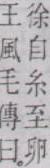 徐自糸至卵
王風毛傳曰